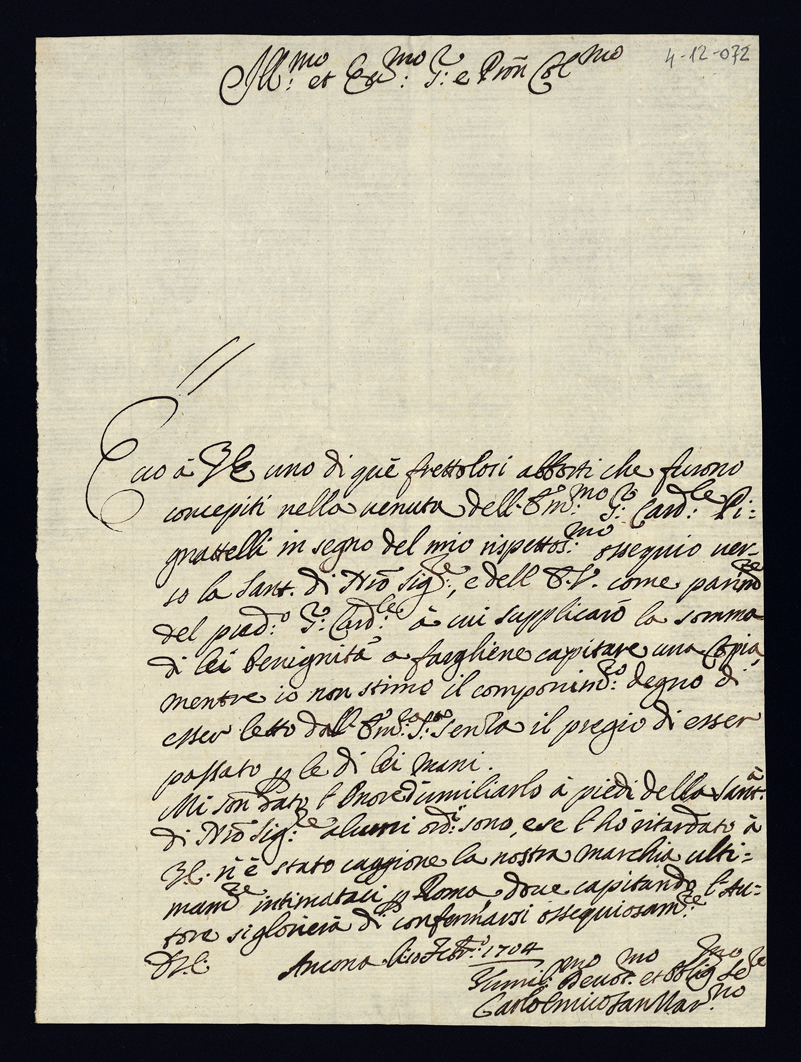 4-12-072
Ill:mo et Ecc:mo Sr: e Pron Col:mo
Ecco à V.E. uno di què frettolosi abborti che furono
concepiti nella venuta dell' Em:mo Sr: Card:le Pi=
gnattelli in segno del mio rispettos:mo ossequio ver=
so la Sant. di Nro Sig:re, e dell' E.V. come
del pred:o Sr: Card:le à cui supplicarò la somma
di lei benignità a fargliene capitare una Copia,
mentre io non stimo il componim:to degno di
esser letto dall' Em: senza il pregio di esser
passato p le di lei mani.
Mi son dato l'onore d'umiliarlo à piedi della Santà.
di Nro Sig:re alcuni ordi sono, e se l'ho ritardato à
V.E. n'è stato caggione la nostra marchia ulti=
mam:te intimataci p Roma, dove capitando l'Au=
tore si glorierà di confermarsi ossequiosam:te
D.V.E. Ancona li 10 Febr:o 1704
Humil:mo Devot:mo et Oblig:mo Se:re
Carlo Enrico San Mar:no